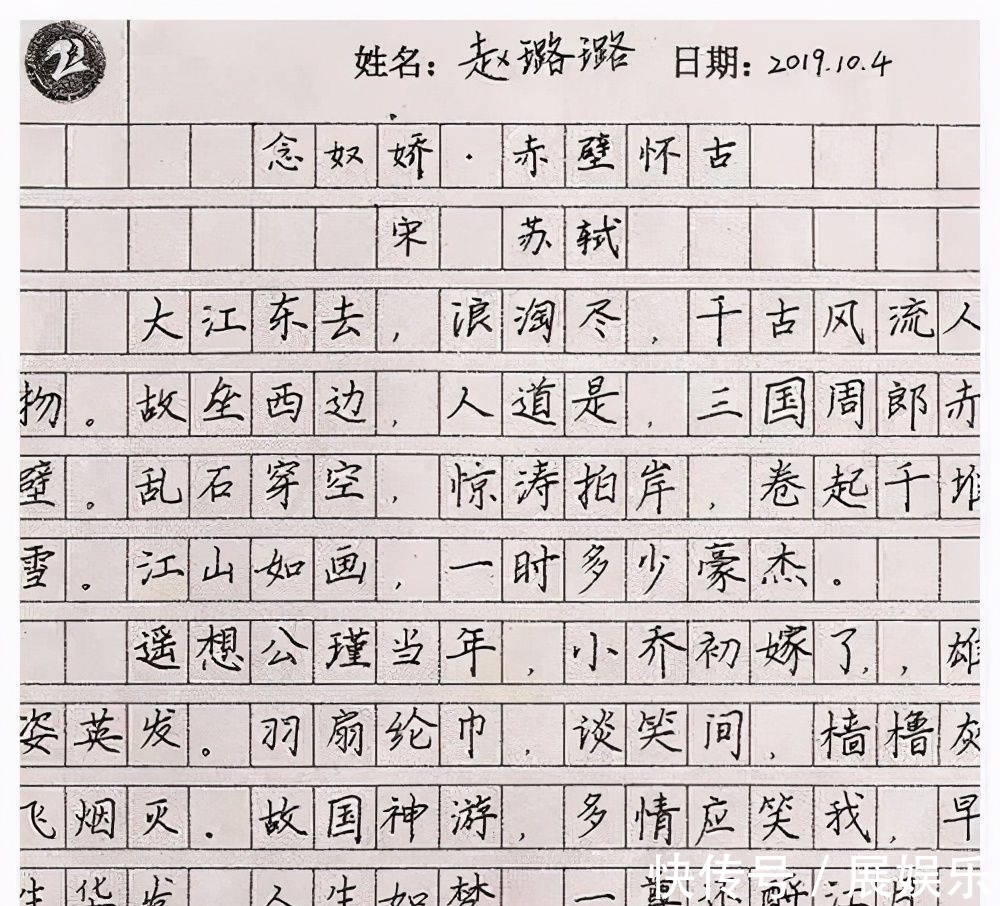 2
姓名：赵璐璐 日期：2019.10.4
念奴娇·赤壁怀古
宋 苏轼
大江东去，浪淘尽，千古风流人
物。故垒西边，人道是，三国周郎赤
壁。乱石穿空，惊涛拍岸，卷起千堆
雪。江山如画，一时多少豪杰。
遥想公瑾当年，小乔初嫁了，，雄
姿英发。羽扇纶巾，谈笑间，樯橹灰
飞烟灭．故国神游，多情应笑我，早
生华发 人生如梦 一 还酹江
快传号 / 展娱乐